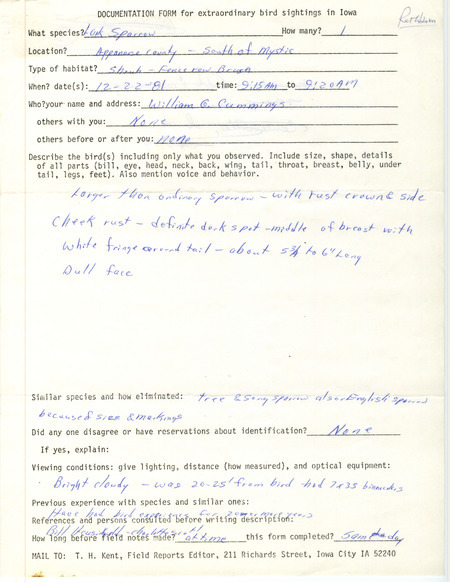 DOCUMENTATION FORM for extraordinary bird sightings in Iowa
What species? Lark Sparrow How many? 1
Location? Appanoose County - South of Mystic
Type of habitat? Shrub - Fence row Brush
When? date(s): 12-22-81 time: 9:15AM to 9:20AM
Who? your name and address: William C. Cummings
others with you: None
others before or after you: none
Describe the bird(s) including only what you observed. Include size, shape, details
of all parts (bill, eye, head, neck, back, wing, tail, throat, breast, belly, under
tail, legs, feet). Also mention voice and behavior.
Larger than ordinary sparrow - with rust crown & side
Cheek rust - definite dark spot - middle of breast with
White fringe around tail - about 5 3/4 to 6" Long
Dull face
Similar species and how eliminated: tree & song sparrow also English sparrow
because of size & markings
Did any one disagree or have reservations about identification? None
If yes, explain:
Viewing conditions: give lighting, distance (how measured), and optical equipment:
Bright cloudy - was 20-25' from bird - had 7x35 binoculars
Previous experience with species and similar ones:
Have had bird experience for 20 or more years
References and persons consulted before writing description:
How long before field notes made? at time this form completed? Same day
MAIL TO: T. H. Kent, Field Reports Editor, 211 Richards Street, Iowa City IA 52240